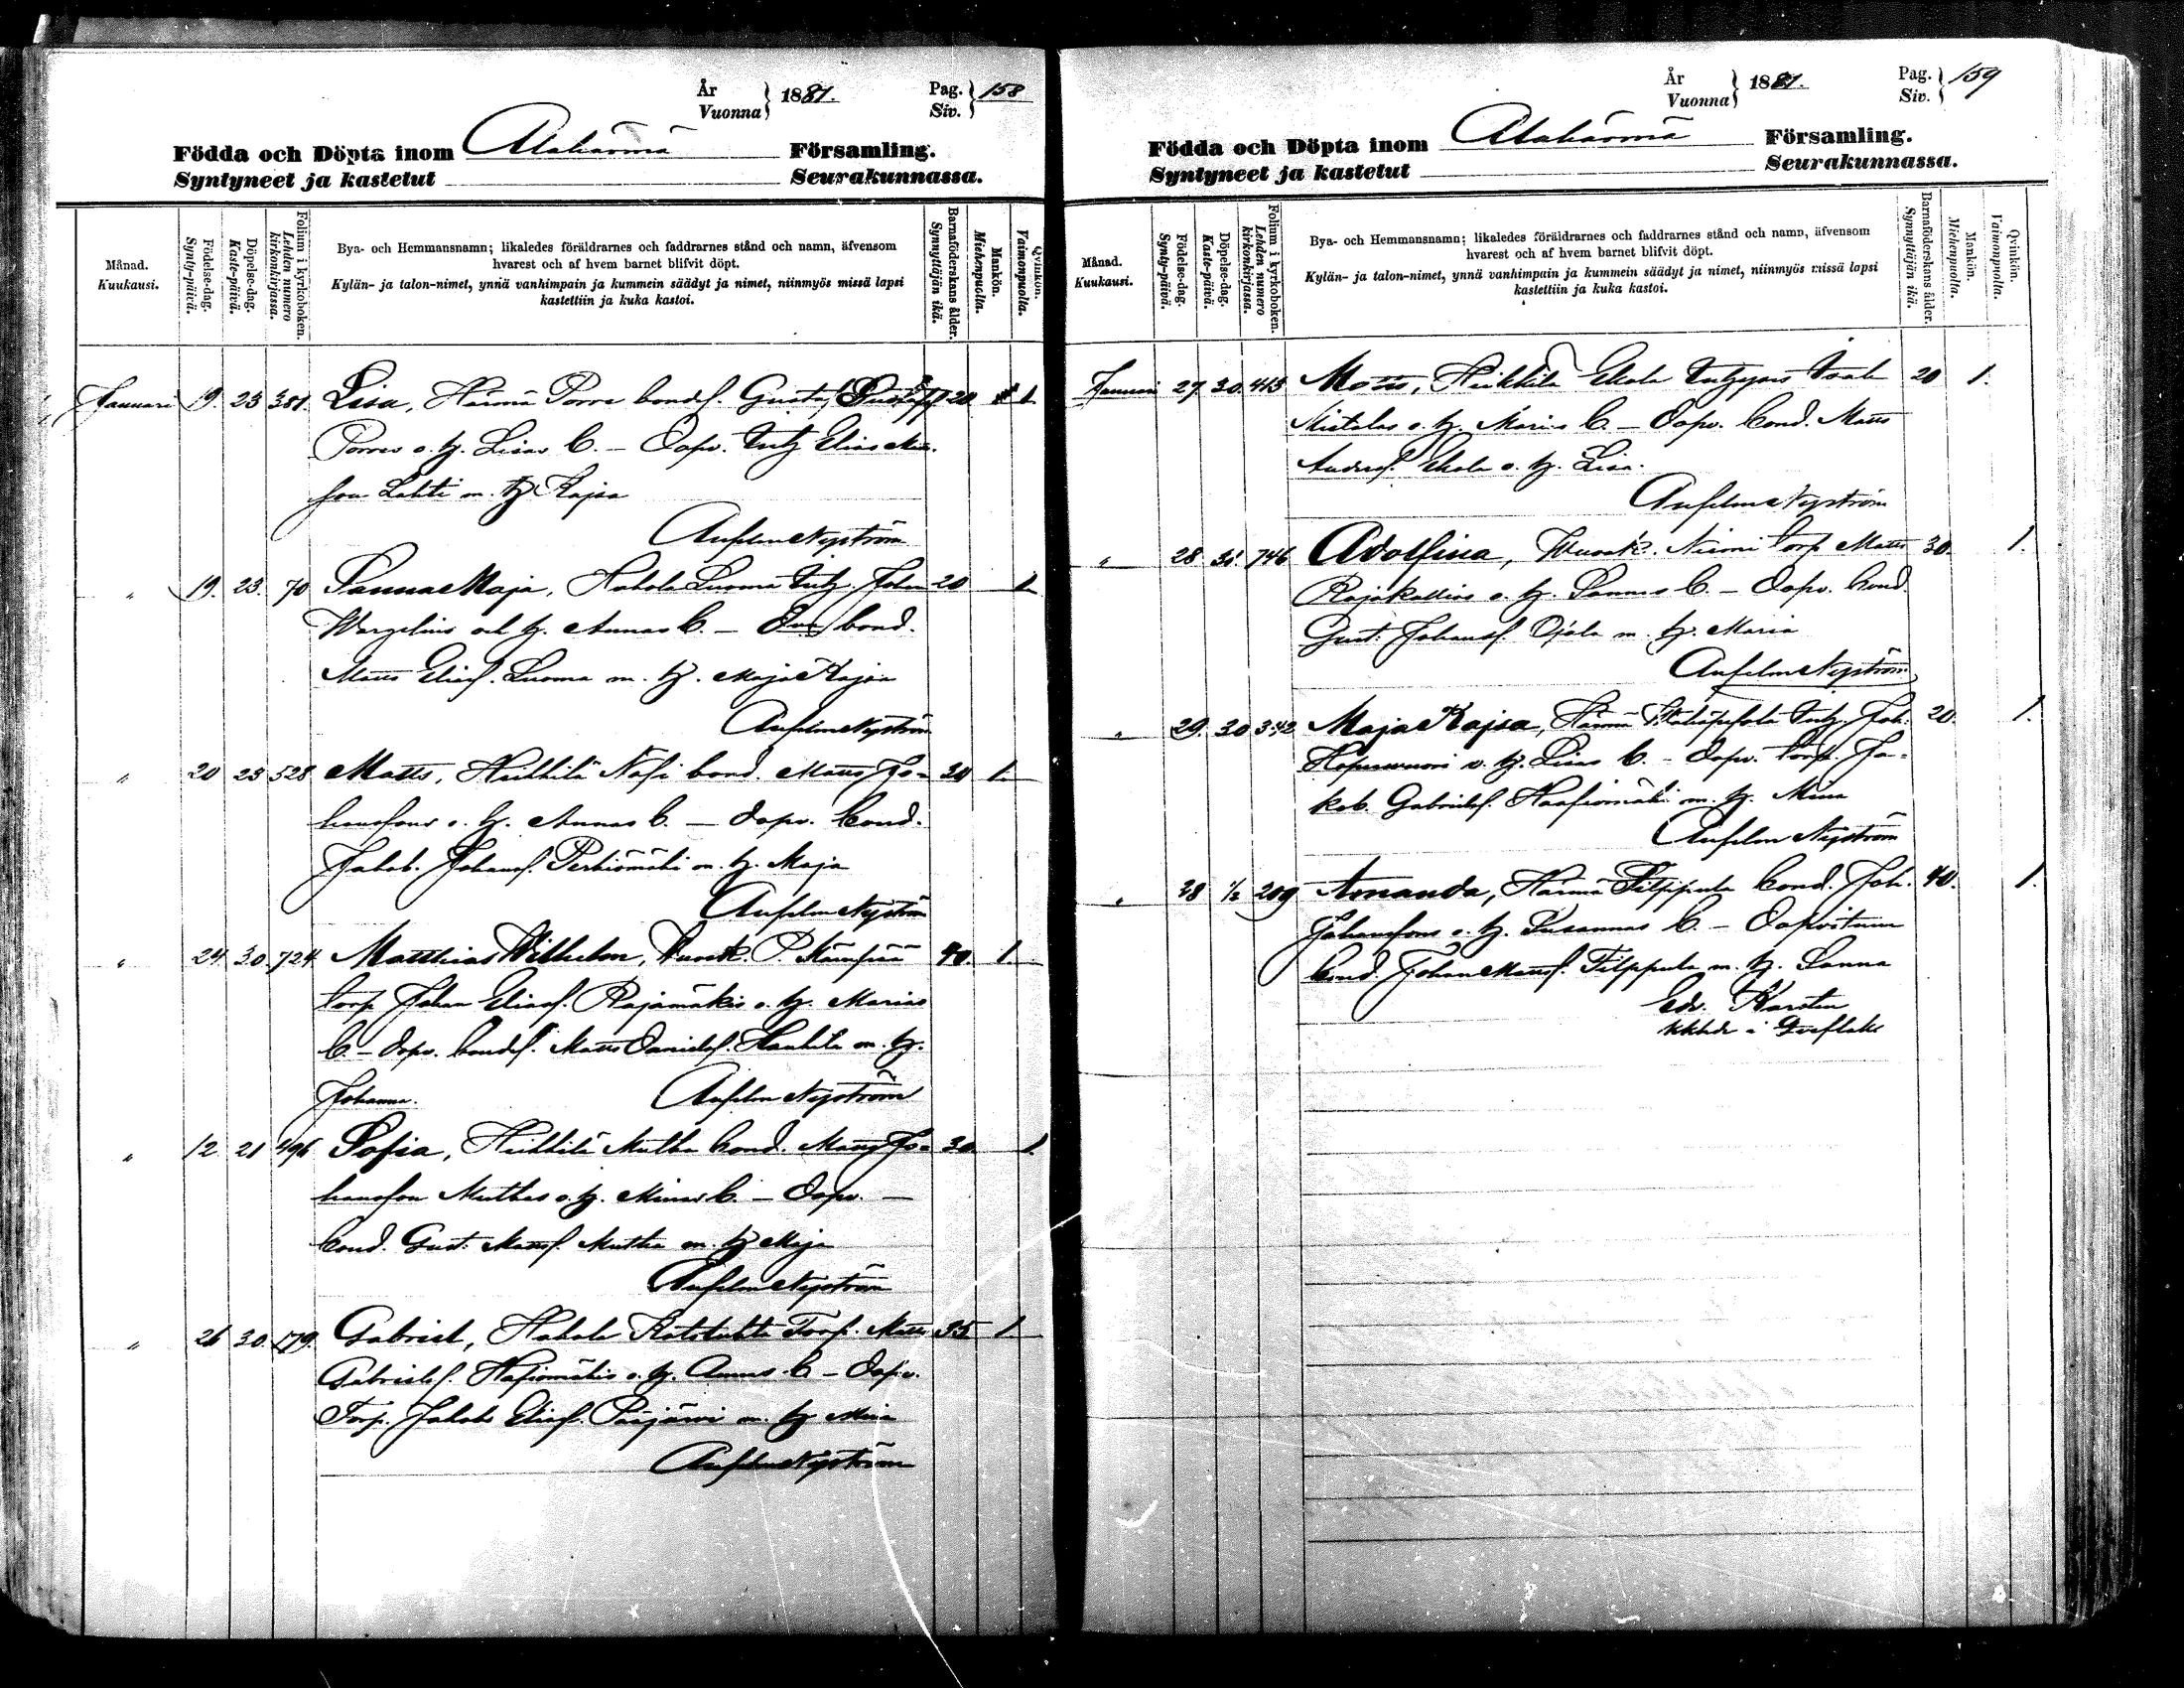 År
Vuonna } 1881.
Pag.
Siv. } 158
Födda och Döpta inom Alahärmä Församling.
Syntyneet ja kastetut Seurakunnassa.
Månad.
Kuukausi.
Födelse-dag.
Synty-päivä.
Döpelse-dag.
Kaste-päivä.
Folium i kyrkoboken.
Lehden numero
kirkonkirjassa.
Bya- och Hemmansnamn; likaledes föräldrarnes och faddrarnes stånd och namn, äfvensom
hvarest och af hvem barnet blifvit döpt.
Kylän- ja talon-nimet, ynnä vanhimpain ja kummein säädyt ja nimet, niinmyös missä lapsi
kastettiin ja kuka kastoi.
Barnaföderskans ålder.
Synnyttäjän ikä.
Mankön.
Miehenpuolta.
Qvinkön.
Vaimonpuolta.
Januari 19. 23 381. Lisa, Härmä Porre bondes. Gustaf 20 1
Porres o. h. Lisas b. – Dopv. Elias
son Lahti m. h. Kajsa
Anselm Nyström
" 19. 23. 70 Sanna Maja, Hakola Luoma Johan 20 1
Wargelins och h. Annas b. – bond.
Matts Eliass. Luoma m. h. Maja Kajsa
Anselm Nyström
" 20 23 528 Matts, Heikkilä bond. Matts Jo- 30 1
hanssons o. h. Annas b. – dopv. bond.
Jakob Johanss. m. h. Maja
Anselm Nyström
" 24. 30. 724 Matthias Wilhelm, P. Kämpää 40. 1
torp Johan Eliass. Rajamäkis o. h. Marias
b. – dopv. bondes. Matts Davidss. m. h.
Johanna. Anselm Nyström
" 12 21 496 Sofia, Heikkilä Mutka bond. Matts Jo- 30 1
hansson Mutkas o. h. Minas b. – Dopv. –
bond. Gust. Mattss. Mutka m. h. Maja
Anselm Nyström
" 26 30. 179. Gabriel, Hakola Torp. Matts 35 1
Gabrielss. o. h. Annas b. – Dopv.
Torp. Jakob Eliass. m. h.
Anselm Nyström
År
Vuonna } 1881.
Pag.
Siv. } 159
Födda och Döpta inom Alahärmä Församling.
Syntyneet ja kastetut Seurakunnassa.
Månad.
Kuukausi.
Födelse-dag.
Synty-päivä.
Döpelse-dag.
Kaste-päivä.
Folium i kyrkoboken.
Lehden numero
kirkonkirjassa.
Bya- och Hemmansnamn; likaledes föräldrarnes och faddrarnes stånd och namn, äfvensom
hvarest och af hvem barnet blifvit döpt.
Kylän- ja talon-nimet, ynnä vanhimpain ja kummein säädyt ja nimet, niinmyös missä lapsi
kastettiin ja kuka kastoi.
Barnaföderskans ålder.
Synnyttäjän ikä.
Mankön.
Miehenpuolta.
Qvinkön.
Vaimonpuolta.
Januari 27. 30. Matts, Heikkilä Ekola Isak 20 1.
o. h. Marias b. – Dopv. bond. Matts
Anderss. Ekola o. h. Lisa.
Anselm Nyström
" 28 746 Adolfina, Niemi torp Matts 30. 1.
Rajakallios o. h. Sannas b. – Dopv. bond.
Gust. Johanss. Ojala m. h. Maria
Anselm Nyström
" 29. 30 342 Maja Kajsa, Härmä Joh. 20. 1.
o. h. Lisas b. – Dopv. torp. Ja-
kob Gabrielss. m. h. Mina
Anselm Nyström
" 28 1/2 209 Amanda, Härmä Filppula bond. Joh. 40. 1.
Johanssons o. h. Susannas b. – Dopvittnen
bond. Johan Mattss. Filppula m. h. Sanna
Edv. Karsten